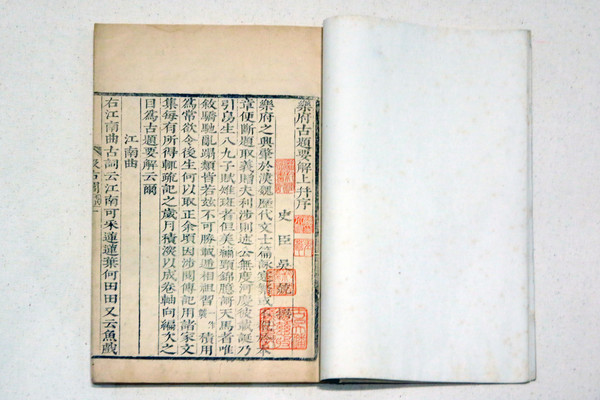 樂府古題要解上并序
史臣吳兢撰
樂府之興肇於漢魏歷代文士篇詠寔繁或不本
章便斷題取義贈夫利涉則述公無度河慶彼載誕乃
引烏生八九子賦雉斑者但美繡頸錦臆歌天馬者唯
敘驕馳亂蹋類皆若茲不可勝載遞相祖習積用
為常欲令後生何以取正余頃因涉閱傳記用諸家文
集每有所得輒疏記之歲月積深以成卷軸向編次之
目為古題要解云爾
江南曲
右江南曲古詞云江南可采蓮蓮葉何田田又云魚戲